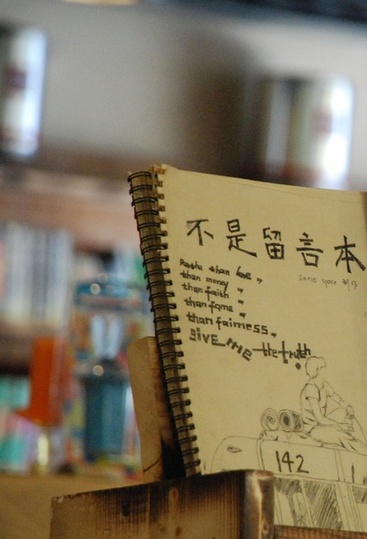 不是留言本
Rathe than love,,
than money ,,
than faith ,,
than fame ,,
than fairness,,
give me the truth.
142
1